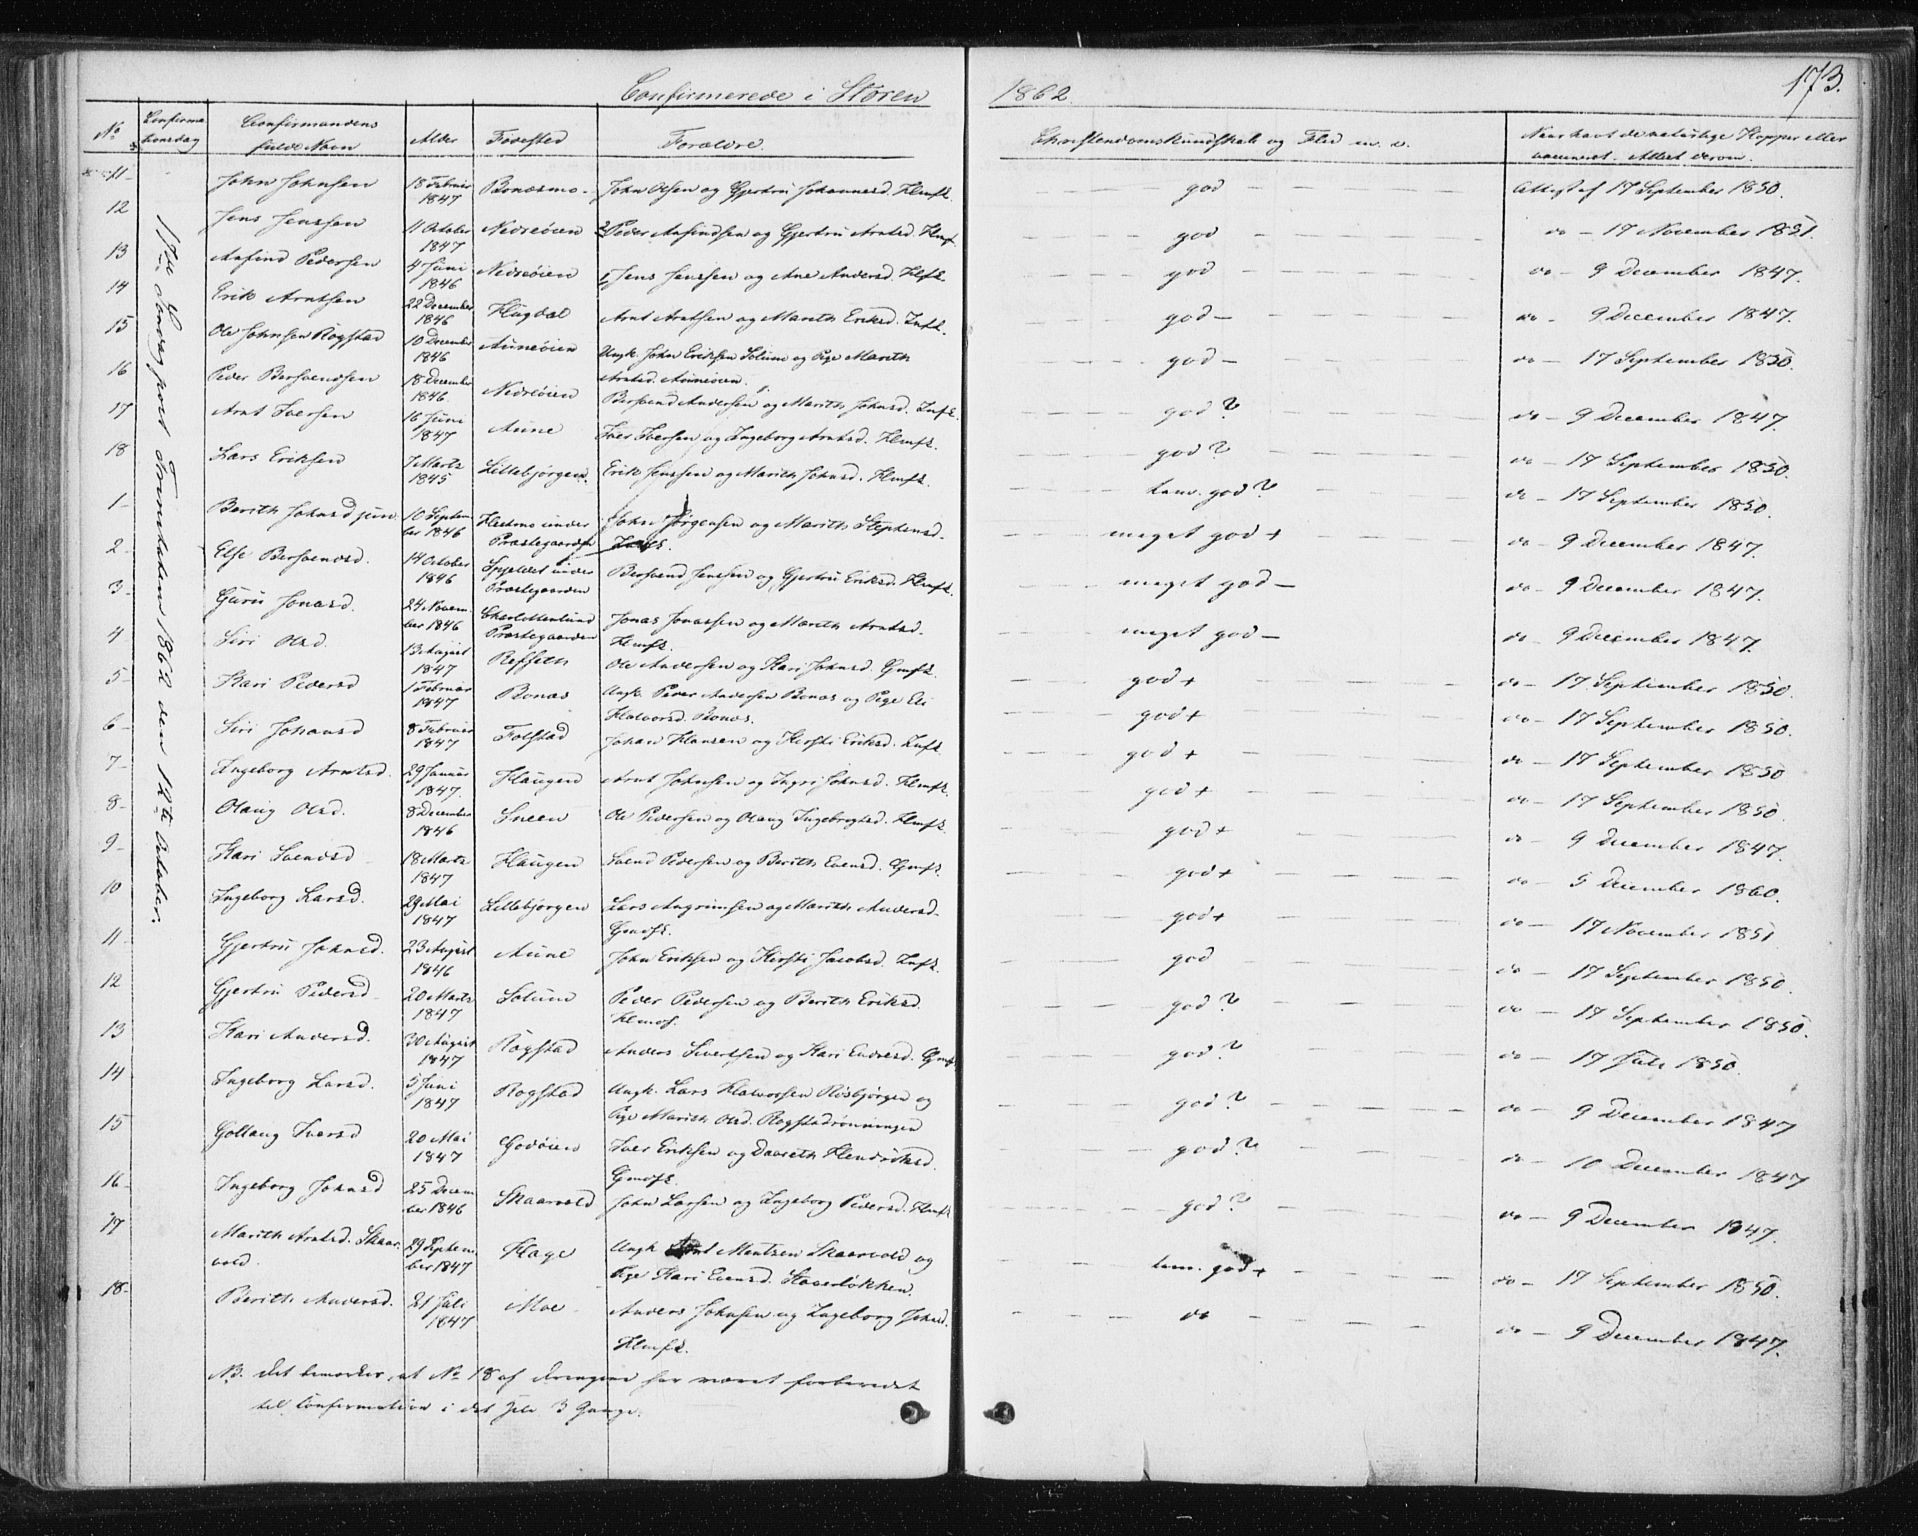 Confirmerede i Støren 1862. 173.
No Confirmationsdag Confirmandens fulde Navn Alder Fødested Forældre. Christendomskundskab og Flid m. v. Naar havt de naturlige Kopper eller vaccineret. Attest derom.
17de Søndag post Trinitatem 1862 den 12te October.
11 John Johnsen 18 Februar 1847 Bonæsmo John Olsen og Gjertru Johannesd. Hmfk. god Attest af 17 September 1850.
12 Jens Jenssen 11 October 1847 Nedreøien Peder Anfindsen og Gjertru Arntsd. Hmfk. god do – 17 November 1851.
13 Anfind Pedersen 4 Juni 1846 Nedreøien Jens Jenssen og Ane Andersd. Hmfk. god do – 9 December 1847.
14 Erik Arntsen 22 December 1846 Hugdal Arnt Arntsen og Marith Eriksd. Infk. god – do – 9 December 1847.
15 Ole Johnsen Rogstad 10 December 1846 Auneøien Ungk. John Eriksen Solum og Pige Marith
Arntsd. Auneøien. god – do – 17 September 1850.
16 Peder Bersvendsen 18 December 1846 Nedreøien Bersvend Andersen og Marith Johnsd. Infk. god ? do – 9 December 1847.
17 Arnt Iversen 16 Juni 1847 Aune Iver Iversen og Ingeborg Arntsd. Hmfk. god ? do – 17 September 1850.
18 Lars Eriksen 7 Marts 1845 Lillebjørgen. Erik Jenssen og Marith Johnsd. Hmfk. tem. god ? do – 17 September 1850.
1 Berith Johnsd jun. 10 September 1846 Hestmo under Præstegaarden John Jørgensen og Marith Stephensd. meget god + do – 9 December 1847.
2 Else Bersvendsd. 14 October 1846 Spjeldet under Præstegaarden Bersvend Jenssen og Gjertru Eriksd. Hmfk. meget god – do – 9 December 1847.
3 Guru Jonasd. 24 November 1846 Charlottenlund Præstegaarden Jonas Jonassen og Marith Arntsd.
Hmfk. meget god – do – 9 December 1847.
4 Siri Olsd. 13 August 1847 Refseth Ole Andersen og Kari Johnsd. Gmfk. god + do – 17 September 1850.
5 Kari Pedersd 1 Februar 1847 Bonæs Ungk. Peder Andersen Bonæs og Pige Eli
Halvorsd. Bonæs. god + do – 17 September 1850.
6 Siri Johansd 8 Februar 1847 Folstad Johan Hansen og Kirsti Eriksd. Infk. god + do – 17 September 1850
7 Ingeborg Arntsd. 29 Januar 1847. Haugen Arnt Johnsen og Ingri Johnsd. Hmfk. god + do – 17 September 1850.
8 Olaug Olsd. 8 December 1846 Sneen Ole Pedersen og Olaug Ingebrigtsd. Hmfk. god + do – 9 December 1847.
9 Kari Svendsd 18 Marts 1847 Haugen Svend Pedersen og Berith Evensd. Gmfk. god + do – 5 December 1860.
10 Ingeborg Larsd. 29 Mai 1847 Lillebjørgen Lars Angrimsen og Marith Andersd.
Gmdfk. god + do – 17 November 1851
11 Gjertru Johnsd. 23 August 1846 Aune John Eriksen og Kirsti Jacobsd. Infk. god do – 17 September 1850.
12 Gjertru Pedersd 20 Marts 1847 Solum Peder Pedersen og Berith Eriksd. god ? do – 17 September 1850.
13 Kari Andersd. 30 August 1847 Rogstad Anders Sivertsen og Kari Endresd. Gmfk. god ? do – 17 Juli 1850.
14 Ingeborg Larsd. 5 Juni 1847 Rogstad Ungk. Lars Halvorsen Røsbjørgen og
Pige Marith Olsd. Rogstadrønningen god ? do – 9 December 1847
15 Gollaug Iversd 20 Mai 1847 Godøien Iver Eriksen og Dorreth Hendriksd.
Gmdfk. god ? do – 10 December 1847
16 Ingeborg Johnsd 25 December 1846 Skaarvold John Larsen og Ingeborg Pedersd. Hmfk. god ? do – 9 December 1847.
17 Marith Arntsd. Skaarvold. 29 September 1847 Hage Ungk Arnt Mentzen Skaarvold og
Pige Kari Evensd. Staverløkken. tem. god + do – 17 September 1850.
18 Berith Andersd. 21 Juli 1847 Moe Anders Johnsen og Ingeborg Johnsd.
Hmfk. do do – 9 December 1847.
NB. det bemærkes, at No 18 af Drengene har været forberedet
til Confirmation i det Hele 3 Gange.